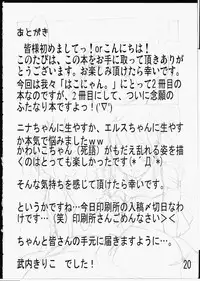 あとがき
皆様初めまして！orこんにちは！
このたびは、この本をお手に取って頂きありが
とうございます。お楽しみ頂けたら幸いです。
今回は我々「はこにゃん。」にとって2冊目の
本なのですが、2冊目にして、ついに念願の
ふたなり本ですよっ！('∇')
ニナちゃんに生やすか、エルスちゃんに生やす
か本気で悩みました…。
かわいこちゃん（死語）がもだえ乱れる姿を描
くのはとっても楽しかったです(*´Д`*)
そんな気持ちを感じて頂けたら幸いです。
というかですね…今日印刷所の入稿〆切日なん
です…。（笑）印刷所さんごめんなさい＞＜
ちゃんと皆さんの手元に届きますように…。
武内きりこ でした！
20